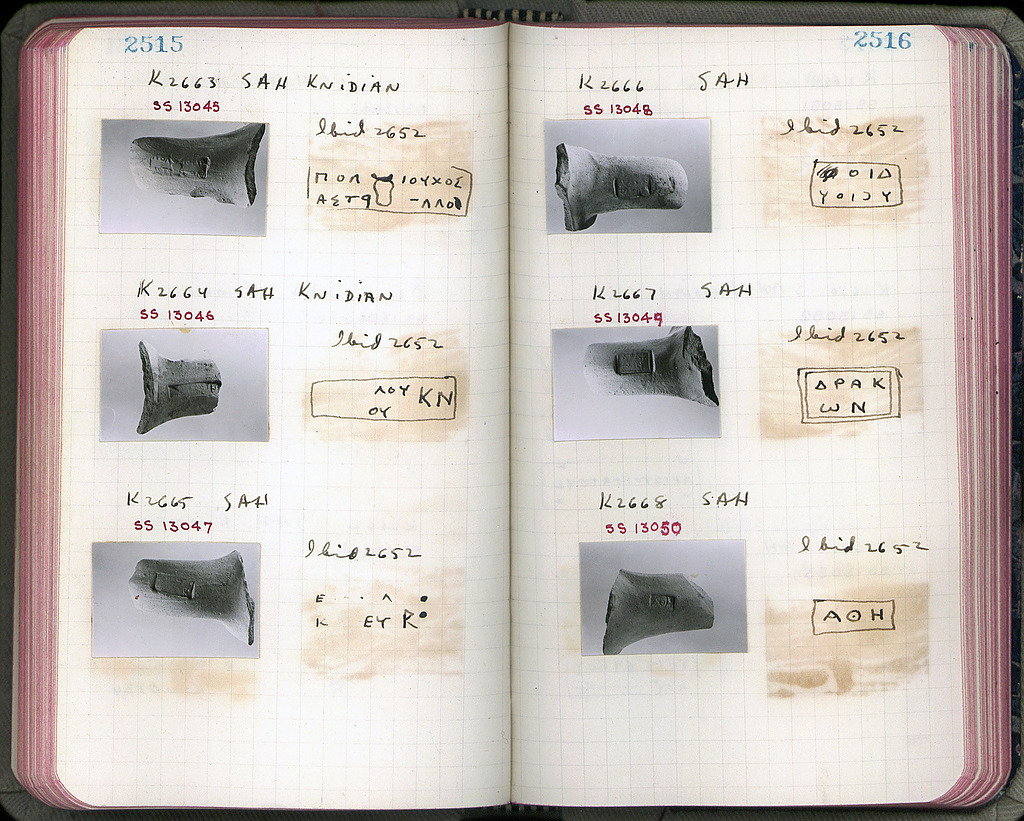 2515
K2663 SAH KNIDIAN
SS 13045
Ibid 2652
ΠΟΛ ΙΟΥΧΟΣ
K2664 SAH KNIDIAN
SS 13046
Ibid 2652
ΛΟΥ ΚΝ
ΟΥ
K2665 SAH
SS 13047
Ibid 2652
Ε . . . Λ
Κ ΕΥ
2516
K2666 SAH
SS 13048
Ibid 2652
ΟΙΔ
K2667 SAH
SS 13049
Ibid 2652
ΔΡΑΚ
ΩΝ
K2668 SAH
SS 13050
Ibid 2652
ΑΘΗ